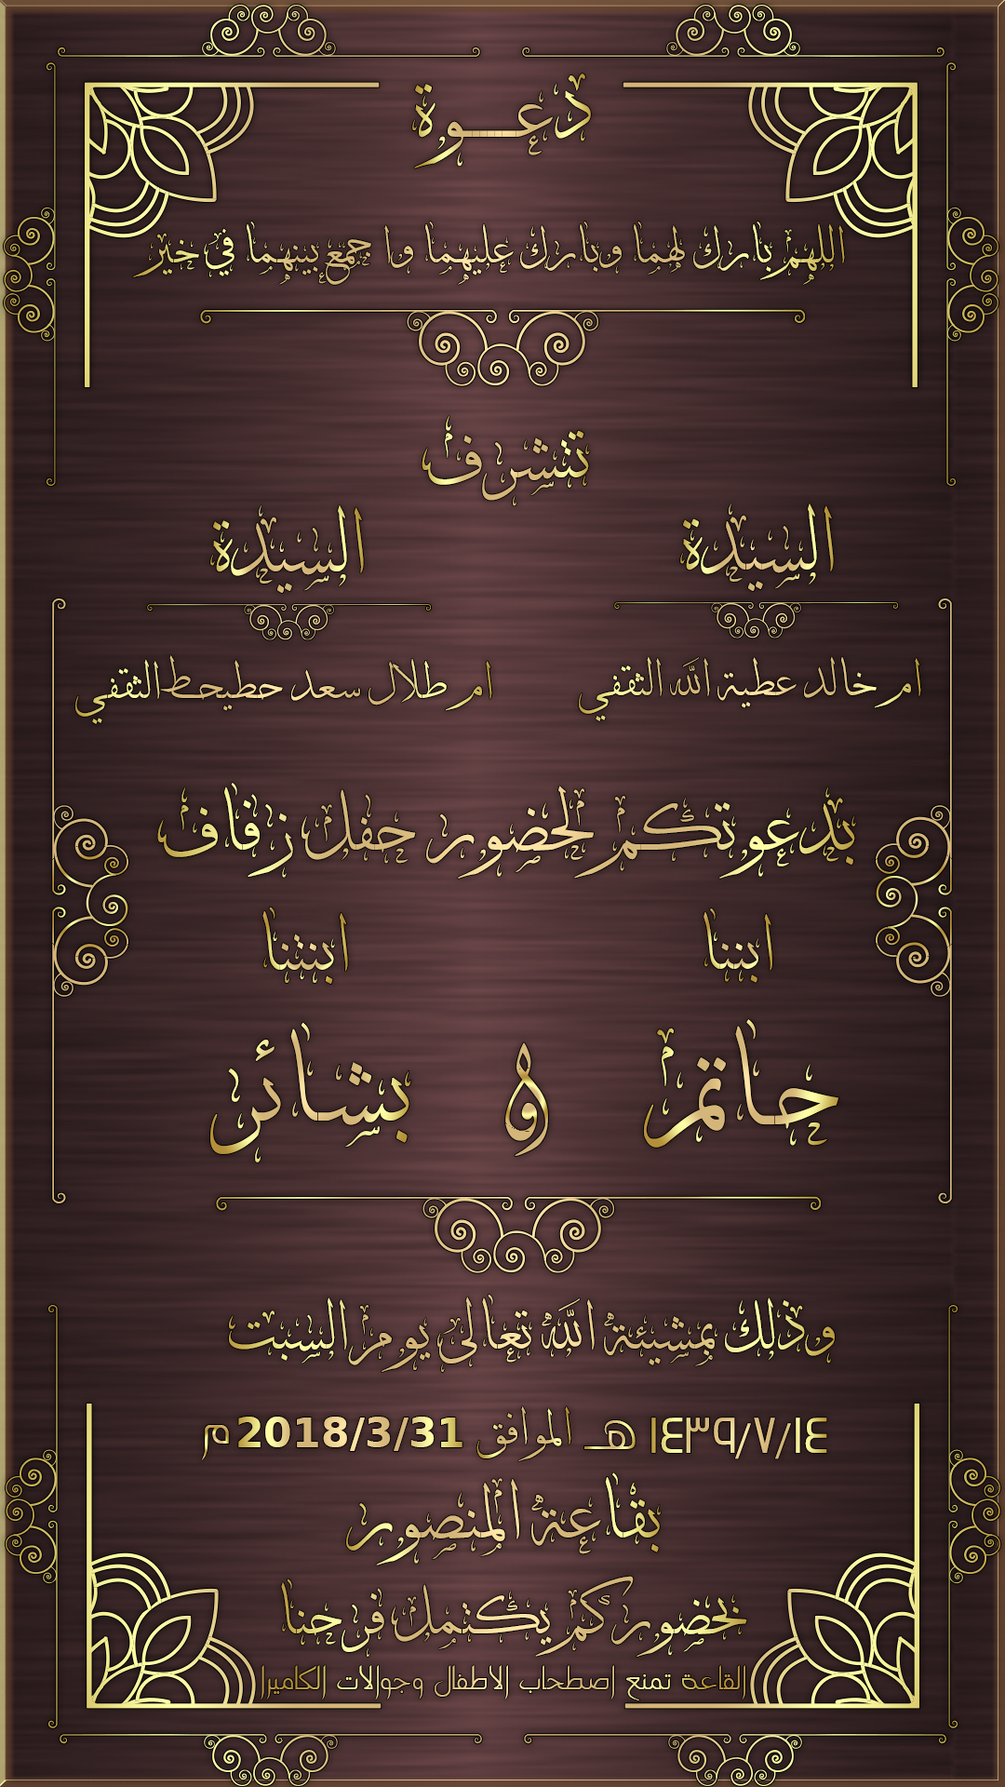 دعـــوة
اللهم بارك لهما وبارك عليهما واجمع بينهما في خير
تتشرف
السيدة السيدة
ام خالد عطية الله الثقفي ام طلال سعد حطيحط الثقفي
بدعوتكم لحضور حفل زفاف
ابننا ابنتنا
حاتم و بشائر
وذلك بمشيئة الله تعالى يوم السبت
١٤٣٩/٧/١٤ هـ الموافق 2018/3/31 م
بقاعة المنصور
بحضوركم يكتمل فرحنا
القاعة تمنع اصطحاب الاطفال وجوالات الكاميرا